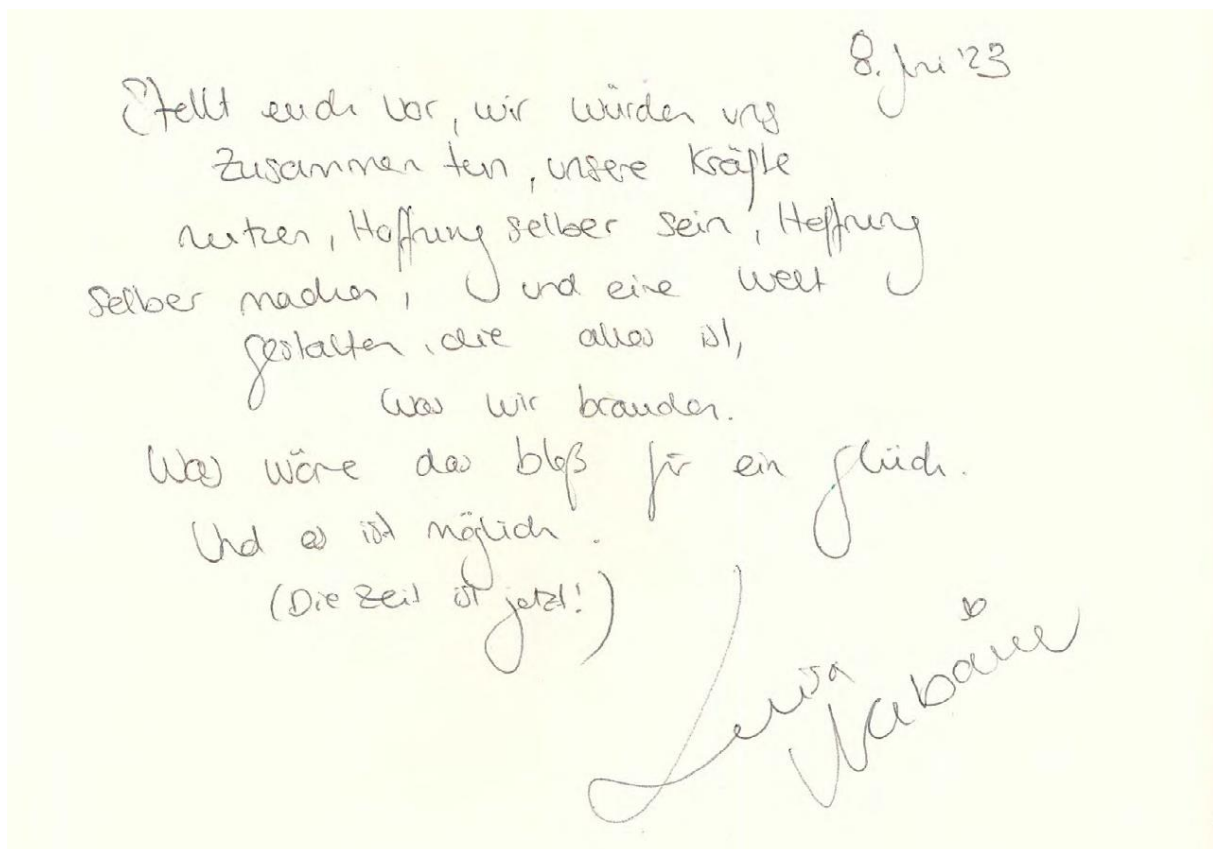 8. Juni '23
Stellt euch vor, wir würden uns
zusammen tun, unsere Kräfte
nutzen, Hoffnung selber sein, Hoffnung
selber machen, und eine Welt
gestalten, die alles ist,
was wir brauchen.
Was wäre das bloß für ein Glück.
Und es ist möglich.
(Die Zeit ist jetzt!)
Luisa
Neubauer